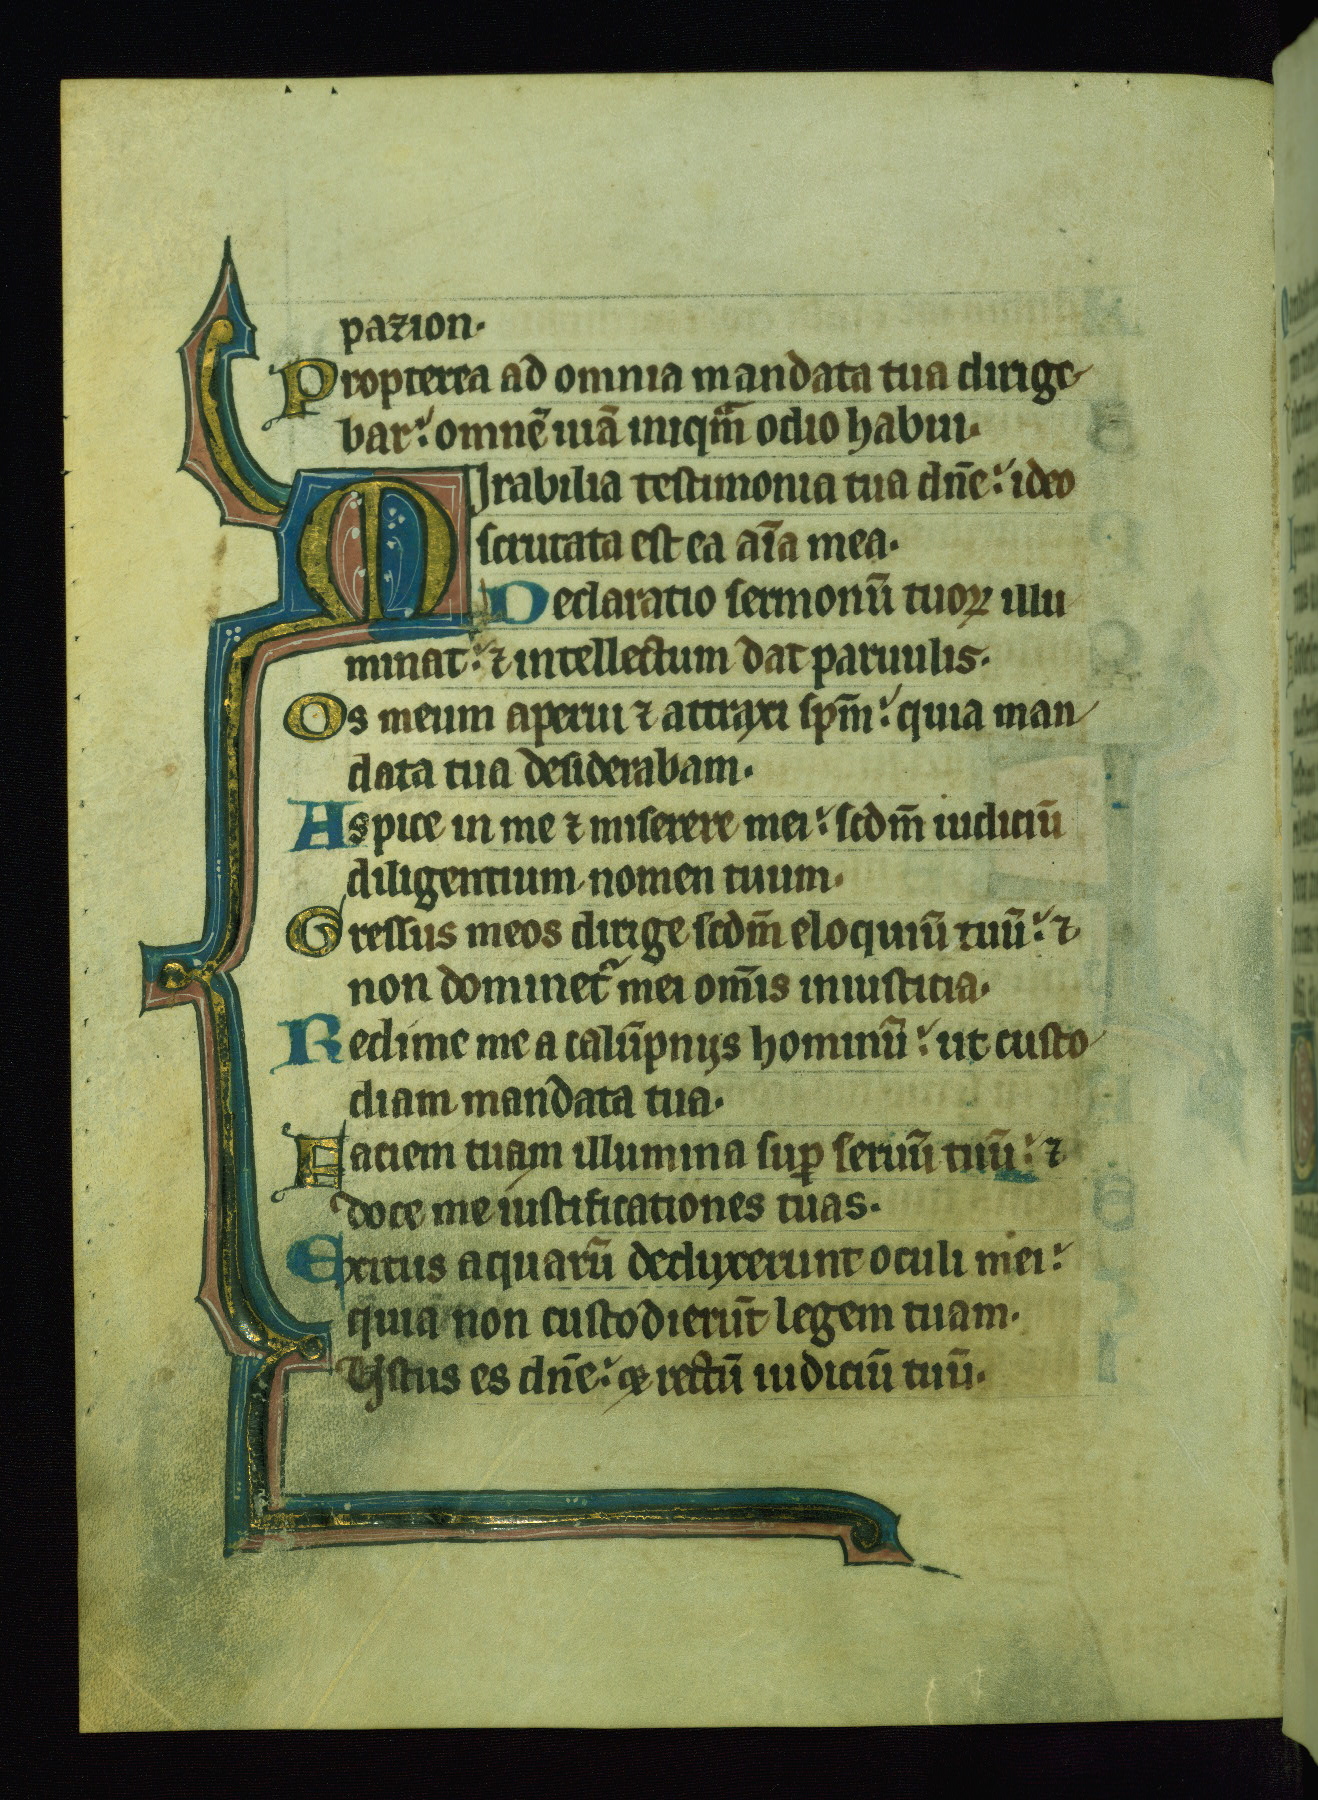 pazion·
Propterea ad omnia mandata tua dirige
bar: omnẽ uiã iniqm̃ odio habui·
Mirabilia testimonia tua dñe: ideo
scrutata est ea aĩa mea·
Declaratio sermonũ tuoꝝ illu
minat: ⁊ intellectum dat paruulis·
Os meum aperui ⁊ attraxi spm̃: quia man
data tua desiderabam·
Aspice in me ⁊ miserere mei: scdm̃ iudiciũ
diligentium nomen tuum·
Gressus meos dirige scdm̃ eloquiũ tuũ: ⁊
non dominet᷑ mei om̃is iniusticia·
Redime me a calũpnijs hominũ: ut custo
diam mandata tua·
Faciem tuam illumina suꝑ seruũ tuũ: ⁊
doce me iustificationes tuas·
Exitus aquarũ deduxerunt oculi mei:
quia non custodierũt legem tuam·
Iustus es dñe: ⁊ rectũ iudiciũ tuũ·